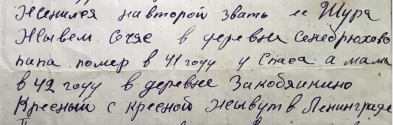 Женился на второй звать ее Шура
Жывем сечяс в деревне Сенебрюхово
папа помер в 41 году у Спаса а мама
в 42 году в деревне Закобякино
Кресный с кресной жывут в Ленинграде